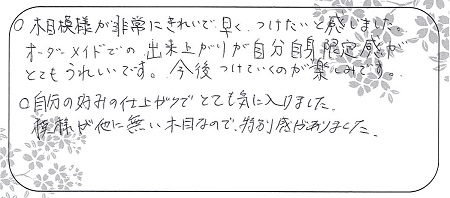 ○ 木目模様が非常にきれいで早く、つけたいと感じました。
オーダーメイドでの出来上がりが自分自身限定感が
とてもうれしいです。今後つけていくのが楽しみです。
○自分の好みの仕上がりでとても気に入りました。
模様が他に無い木目なので、特別感がありました。